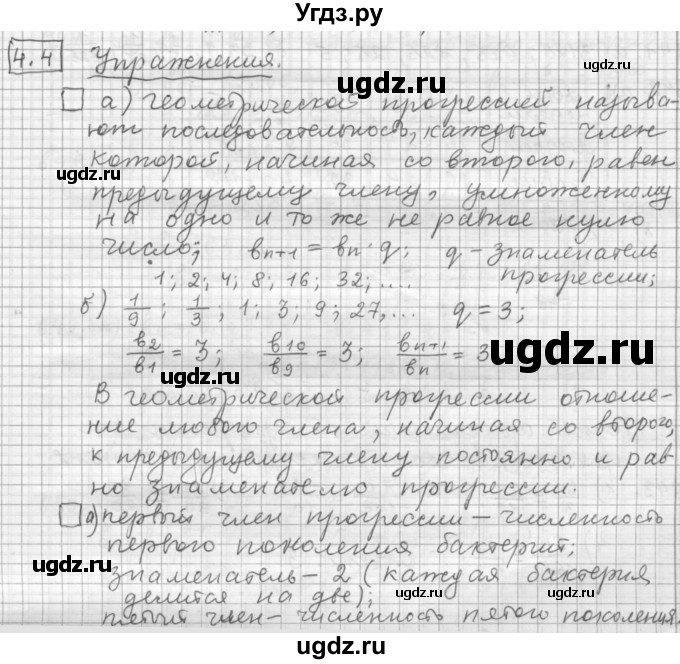 Угдз.ру
4.4 Упражнения.
а) геометрической прогрессией называ-
ют последовательность, каждый член
которой, начиная со второго, равен
предыдущему члену, умноженному
на одно и то же не равное нулю
число; bn+1 = bn · q; q – знаменатель
прогрессии;
1; 2; 4; 8; 16; 32; ....
б) 1/9; 1/3; 1; 3; 9; 27,... q = 3;
b2/b1 = 3; b10/b9 = 3; bn+1/bn = 3
В геометрической прогрессии отноше-
ние любого члена, начиная со второго,
к предыдущему члену постоянно и рав-
но знаменателю прогрессии.
а) первый член прогрессии – численность
первого поколения бактерий;
знаменатель – 2 (каждая бактерия
делится на две);
пятый член – численность пятого поколения.
ugdz.ru
ugdz.ru
ugdz.ru
ugdz.ru
ugdz.ru
ugdz.ru
ugdz.ru
ugdz.ru
ugdz.ru
ugdz.ru
ugdz.ru